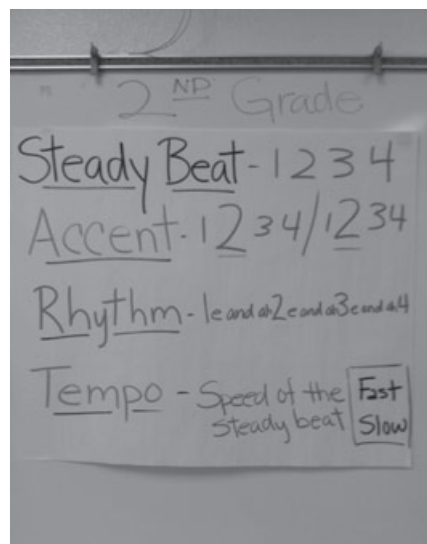 2ND Grade
Steady Beat - 1 2 3 4
Accent - 1 2 3 4 / 1 2 3 4
Rhythm - 1e and ah 2e and ah 3e and a 4
Tempo - Speed of the Fast
Steady beat Slow